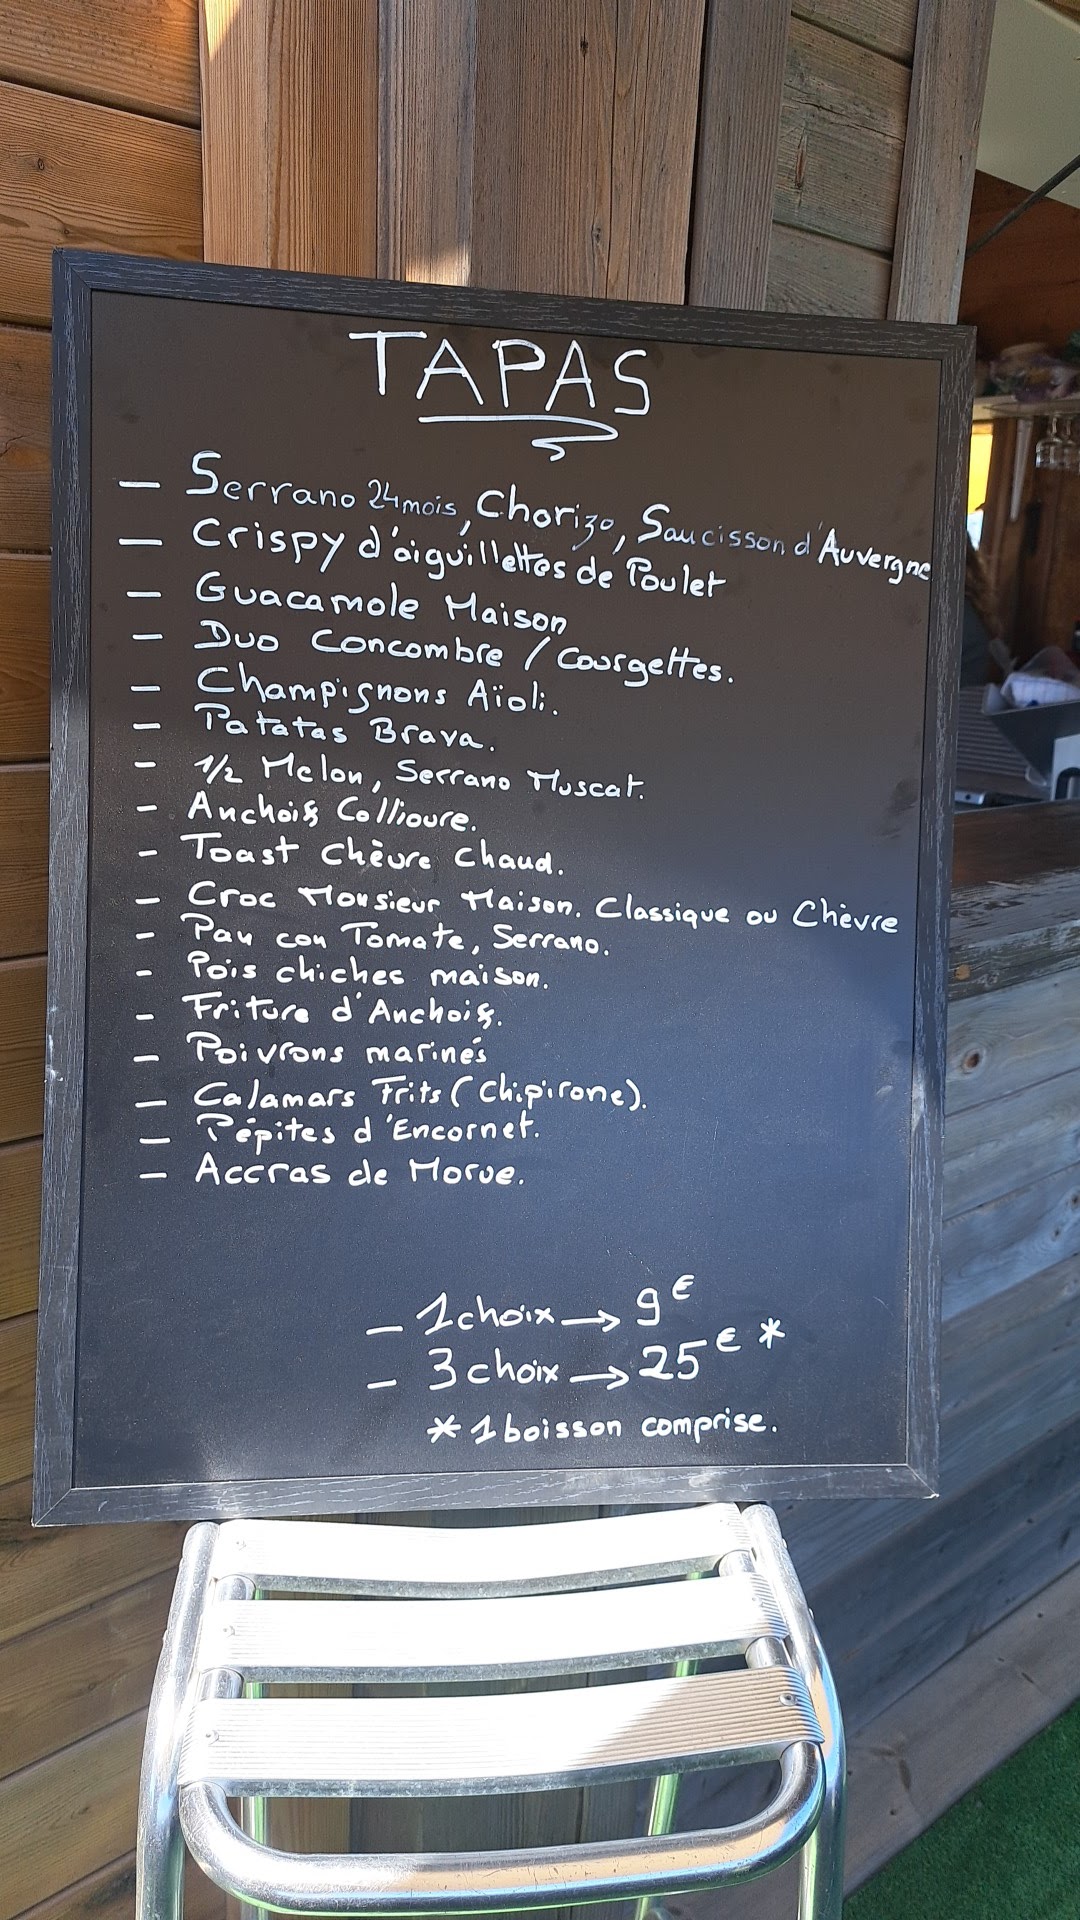 TAPAS
- Serrano 24 mois, Chorizo, Saucisson d'Auvergne
- Crispy d'aiguillettes de Poulet
- Guacamole Maison
- Duo Concombre / Courgettes.
- Champignons Aïoli.
- Patatas Brava.
- 1/2 Melon, Serrano Muscat.
- Anchois Collioure.
- Toast Chèvre Chaud.
- Croc Monsieur Maison. Classique ou Chèvre
- Pan con Tomate, Serrano.
- Pois chiches maison.
- Friture d'Anchois.
- Poivrons marinés
- Calamars Frits (Chipirone).
- Pépites d'Encornet.
- Accras de Morue.
- 1 choix → 9€
- 3 choix → 25€ *
* 1 boisson comprise.